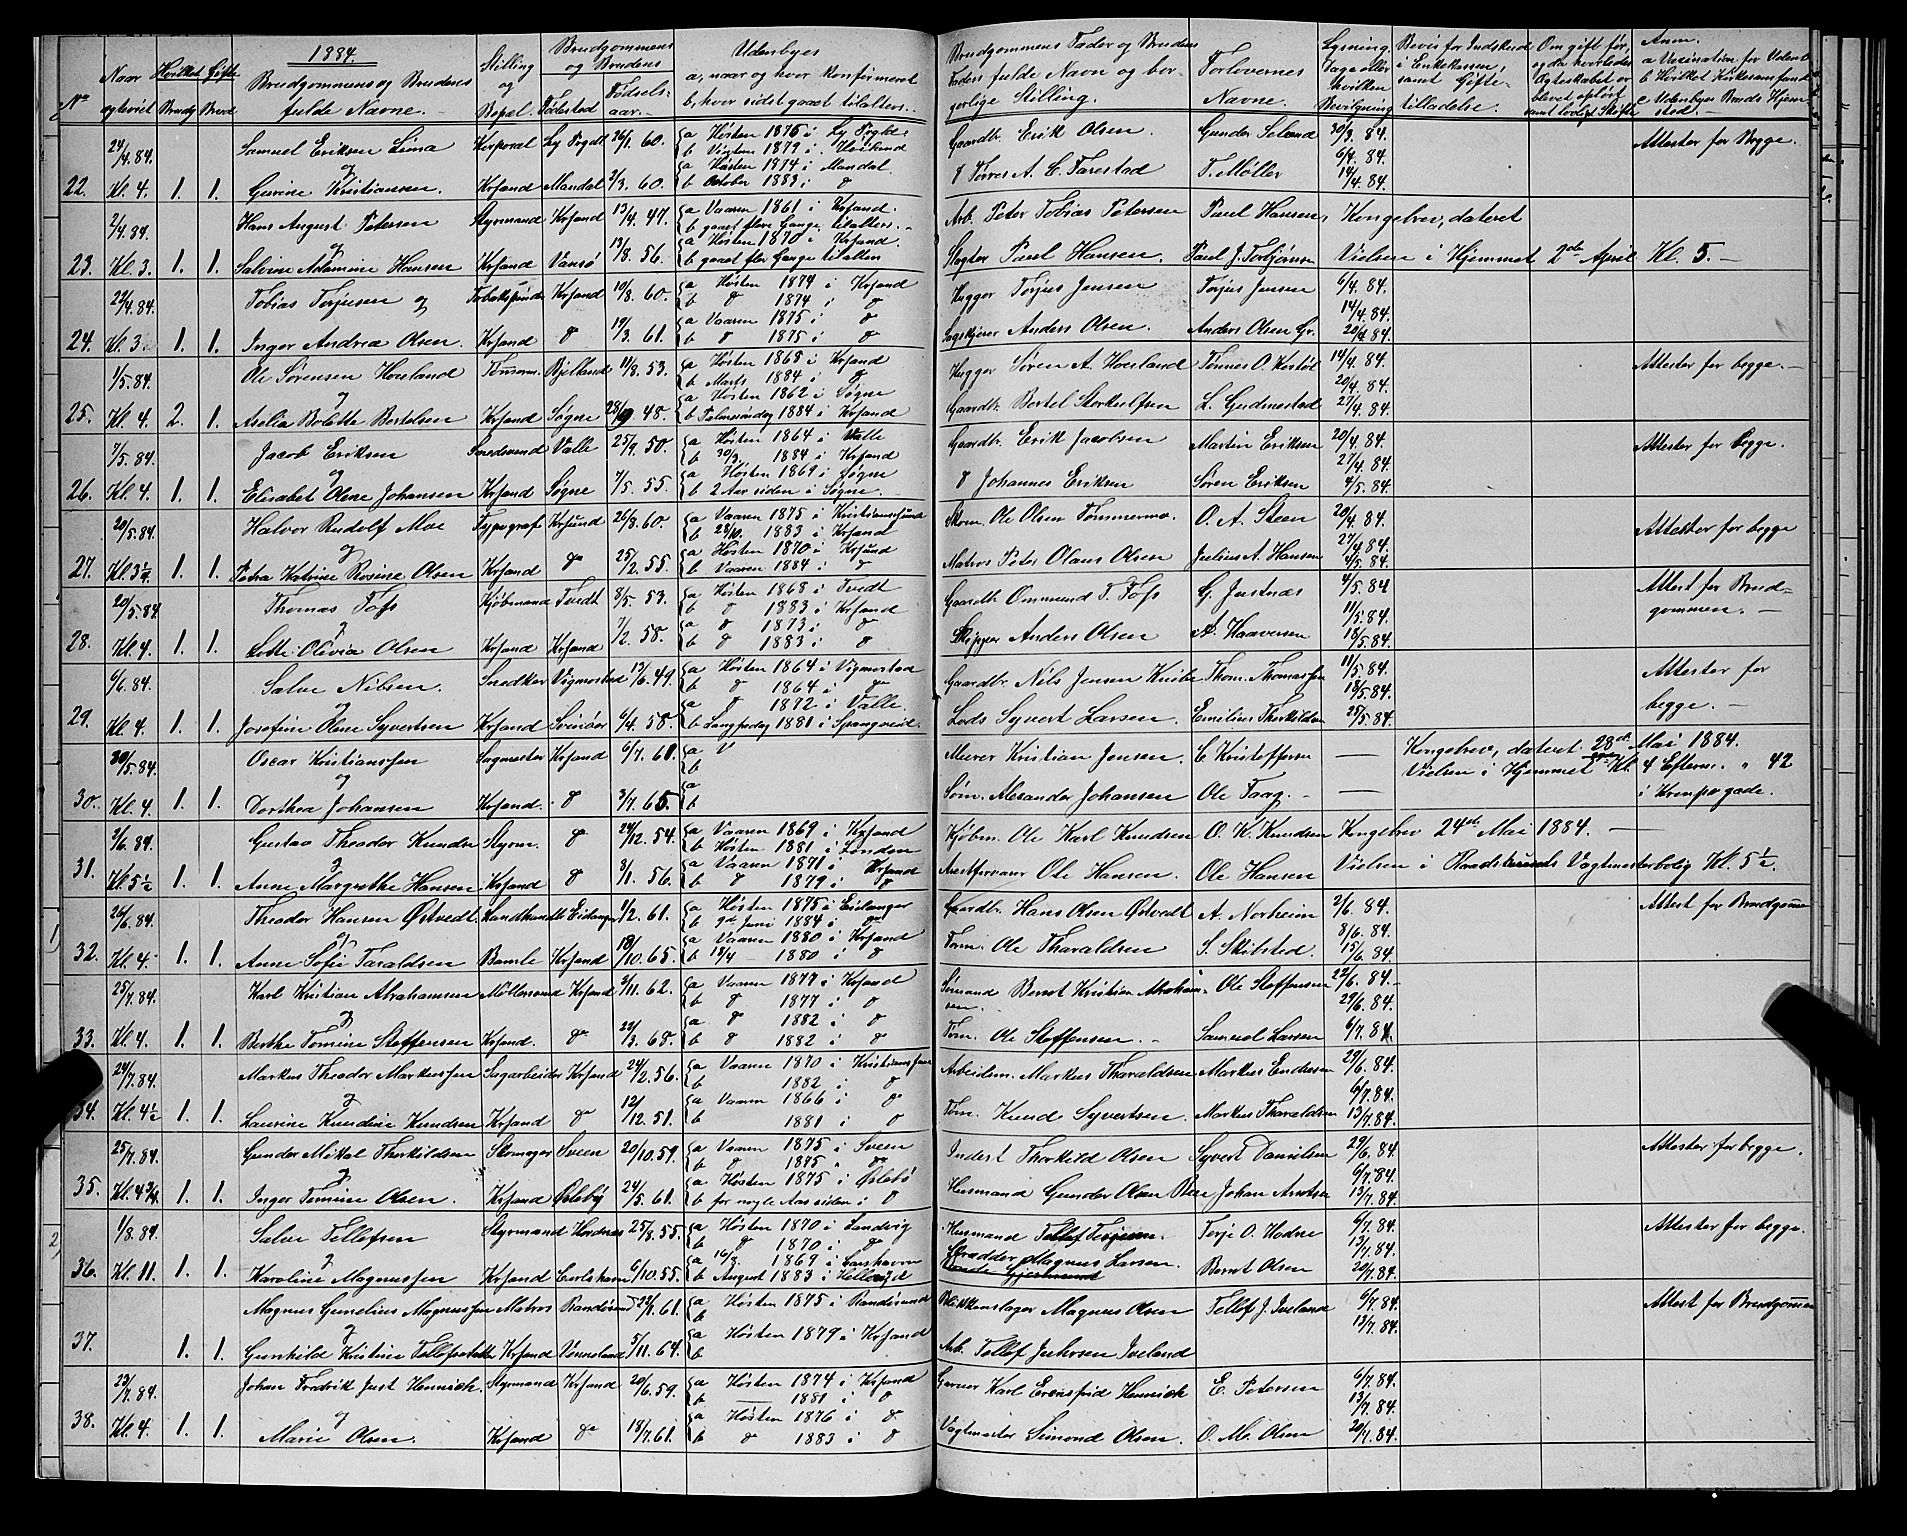 1884.
No
Naar ægteviet
Hvilket Gifte
Brudg
Brud
Brudgommens og Brudens fulde Navne.
Stilling og Bopæl.
Brudgommens og Brudens
Fødested
Fødselsaar.
Udenbyes
a, naar og hvor konfirmeret
b, hvor sidst gaaet tilalters.
Brudgommens Fader og Brudens Faders fulde Navn og borgerlige Stilling.
Forlovernes Navne.
Lysning, Dage eller hvilken Bevilgning
Bevis for Indskud i Enkekassen, samt Giftetilladelse.
Om gift før, og da hvorledes Ægteskabet er blevet opløst samt lovligt Skifte
Anm.
a Vaccination for Udenb
b Hvilket Kirkesamfund
c Udenbyes Bruds Hjemsted.
24/4.84. Samuel Eriksen Lima Korporal Ly Fogdi 26/1.60. a Høsten 1875 i Ly Gaardb. Erik Olsen Gunder Seland 30/3.84. Attester for Begge.
og b 1879 i 6/4.84.
22. Kl. 4. 1. 1. Gurine Kristiansen. Krsand Mandal 2/3.60. a Høsten 1874 i Mandal b October 1883 i do do Torres A. C. Farestad T. Møller 14/4.84.
2/4.84. Hans August Petersen Styrmand Krsand 13/4.47. a Vaaren 1861 i Krsand. b gaaet flere Gange tilalters. Arb. Peter Tobias Petersen Paul Hansen, Kongebrev, dateret
23. Kl. 3. 1. 1. Salvine Adamine Hansen Krsand Vansø 13/8.56. a Høsten 1870 i Krsand. b gaaet fler Gange tilalters Slagter Paul Hansen. Paul J. Torbjørnsen Vielsen i Hjemmet 2den April Kl. 5.
24/4.84. Tobias Torjusen og Tobakspinder Krsand 10/8.60. a Høsten 1874 i Krsand b do 1874 i do Hugger Torjus Jensen Torjus Jensen 6/4.84. 14/4.84.
24. Kl. 3. 1. 1. Inger Andrea Olsen. Krsand do 19/3.61. a Vaaren 1875 i do b do 1875 i do Sagskjærer Anders Olsen. Anders Olsen Gr. 20/4.84.
1/5.84. Ole Sørensen Høeland Tømmerm. Bjelland 11/8.53. a Høsten 1868 i Krsand b Marts 1884 i do Hugger Søren A. Høeland Tønnes O. Kostøl 14/4.84. Attester for begge.
og 20/4.84.
25. Kl. 4. 2. 1. Aselia Bolette Bertelsen Krsand Søgne 28/9 48. a Høsten 1862 i Søgne b Palmesøndag 1884 i Krsand Gaardb. Bertel Storkulfsen L. Gudmestad 27/4.84.
7/5.84. Jacob Eriksen Smedsvend Valle 25/9.50. a Høsten 1864 i Valle b 30/3. 1884 i Krsand Gaardb. Erik Jacobsen Martin Eriksen 20/4.84. Attester for begge.
og 27/4.84.
26. Kl. 4. 1. 1. Elisabet Olene Johansen Krsand Søgne 7/5.55. a Høsten 1869 i Søgne b 2 Aar siden i Søgne. do Johannes Eriksen Søren Eriksen 4/5.84.
20/5.84. Halvor Rudolf Moe Typograf Krsund 26/8.60. a Vaaren 1875 i Kristianssund b 28/10. 1883 i Krsand Skom. Ole Olsen Tømmermo. O. A. Steen 20/4.84. Attester for begge
og 27/4.84.
27. Kl. 3½. 1. 1. Petra Katrine Rosine Olsen Krsand do 25/2.55. a Høsten 1870 i Krsund b Vaaren 1884 i do Matros Peter Olaus Olsen Julius A. Hansen 4/5.84.
20/5.84. Thomas Tofs Kjøbmand Tvedt 8/5.53. a Høsten 1868 i Tvedt b do 1883 i Krsand Gaardb. Ommund T. Tofs G. Justnæs 4/5.84 Attest for Brudgommen.
og 11/5.84.
28. Kl. 4. 1. 1. Lotte Olivia Olsen Krsand Krsand 7/2.58. a do 1873 i do b do 1883 i do Skipper Anders Olsen A. Haaversen 18/5.84.
6/6.84. Salve Nilsen. Snedker Vigmostad 13/6.49. a Høsten 1864 i Vigmostad b do 1864 i do Gaardb. Nils Jensen Thom. Thomassen 11/5.84. Attester for begge.
og 18/5.84.
29. Kl. 4. 1. 1. Josefine Olene Syvertsen Krsand Svinør 6/4.58. a do 1872 i Valle. b Langfredag 1881 i Spangereid. Lods Syvert Larsen. Emilius Therkildsen 25/5.84.
30/5.84. Oscar Kristianssen Sagmester Krsand 6/7.61. a V b Murer Kristian Jensen C. Kristoffersen Kongebrev, dateret 28de Mai 1884.
og Vielsen i Hjemmet Kl. 4 Efterm. " 42
30. Kl. 4. 1. 1. Dorthea Johansen Krsand. do 3/7.65. a b Søm. Alexander Johansen Ole Faag. i Kronpr. gade.
2/6.84. Gustav Theodor Knudsen Styrm. do 24/12.54. a Vaaren 1869 i Krsand b Høsten 1881 i London Kjøbm. Ole Karl Knudsen O. K. Knudsen Kongebrev 24de Mai 1884.
31. Kl. 5½ 1. 1. Anne Margrethe Hansen Krsand do 3/1.56. a Vaaren 1871 i Krsand b do 1879 i do Arestforvarer Ole Hansen. Ole Hansen Vielsen i Raadstuens Vagtmesterbolig Kl. 5½.
26/6.84. Theodor Hansen Østvedt. Landhandl Eidanger 1/2.61. a Høsten 1875 i Eidanger b 9de Juni 1884 i do Gaardbr. Hans Olsen Østvedt A. Norheim 2/6.84. Attest for Brudgommen
og 8/6.84.
32. Kl. 4. 1. 1. Anne Sofie Taraldsen Bamle Krsand 18/10.65. a Vaaren 1880 i Krsand b 18/4 1880 i do Tøm. Ole Tharaldsen S. Skibsted. 15/6.84.
25/7.84. Karl Kristian Abrahamsen Møllersvend Krsand 3/11.62. a Vaaren 1877 i Krsand b do 1877 i do Sømand Berndt Kristian Abrahamsen Ole Steffensen 22/6.84.
og 29/6.84.
33. Kl. 4. 1. 1. Berthe Tomine Steffensen Krsand. do 22/3.65. a do 1882 i do b do 1882 i do Tøm. Ole Steffensen. Samuel Larsen 6/7.84.
24/7.84. Markus Theodor Markussen Sagarbeider Krsand 24/2.56. a Vaaren 1870 i Kristianssand b 1882 i do Arbeidsm. Markus Tharaldsen Markus Endresen 29/6.84.
og 6/7.84.
34. Kl. 4½ 1. 1. Laurine Knudine Knudsen Krsand do 12/12.51. a Vaaren 1866 i do b 1881 i do Tøm. Knud Syvertsen. Markus Tharaldsen 13/7.84.
25/7.84. Gunder Mikal Therkildsen Skomager Sveen 20/10.59. a Vaaren 1875 i Sveen b do 1875 i do Inderst Thorkild Olsen Syvert Danielsen 29/6.84. Attester for begge.
og 6/7.84.
35. Kl. 4¾ 1. 1. Inger Tomine Olsen. Krsand Øslebø 24/5.61. a Høsten 1875 i Øslebø b for nogle Aar siden i do Husmand Gunder Olsen Johan Arntsen 13/7.84.
1/8.84. Salve Tellefsen Styrmand Hordnes 25/8.55. a Høsten 1870 i Landvig b do 1870 i do Husmand Tellef Torjusen. Torje O. Hodne 6/7.84. Attester for begge.
og 13/7.84.
36. Kl. 11. 1. 1. Karoline Magnussen Krsand Carlshavn 6/10.55. a 16/7. 1869 i Carshavn b August 1883 i Hellesyd Skrædder Magnus Larsen. Berndt Olsen 20/7.84.
Magnus Gunelius Magnussen Matros Randøsund 22/1.61. a Høsten 1875 i Randøsund b Blikkenslager Magnus Olsen Tellef J. Iveland 6/7.84. Attest for Brudgommen
og 13/7.84.
37. 1. 1. Gunhilde Kristine Tellefsdatter Krsand Vennesland 5/11.64. a Høsten 1879 i Krsand b Arb. Tellef Jukesen Iveland
22/7.84. Johan Fredrik Just Hennich Styrmand Krsand 20/6.59. a Høsten 1874 i Krsand b 1881 i do Garver Karl Erensfrid Hennich E. Petersen 6/7.84.
og 13/7.84.
38. Kl. 4. 1. 1. Marie Olsen. Krsand do 18/7.61. a Høsten 1876 i do b do 1883 i do Vagtmester Simond Olsen. O. M. Olsen 20/7.84.